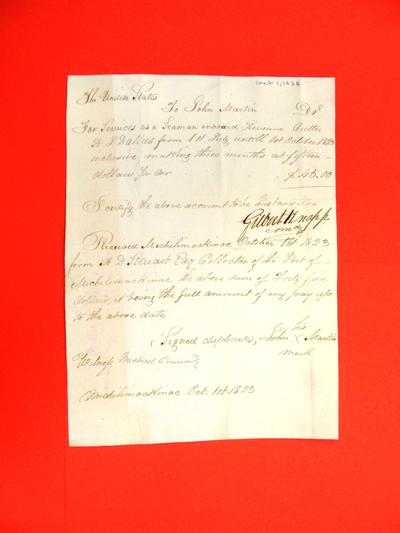 Oct 1, 1823
The United States
To John Martin Dr
For Services as a Seaman onboard Revenue Cutter
A J Dallas from 1st July untill 1st October 1823
inclusive, making three months at fifteen
dollars pr $45.00
I certify the above account to be
Gilbert Knapp
Received Michilimackinac October 1st 1823
from A D Steuart Esq Collector of the Port of
Michilimackinac the above sum of Forty five
dollars, it being the full amount of my pay up
to the above date
Signed duplicates, John X Martin
his
mark
Witness Michael
Michilimackinac Oct. 1st 1823